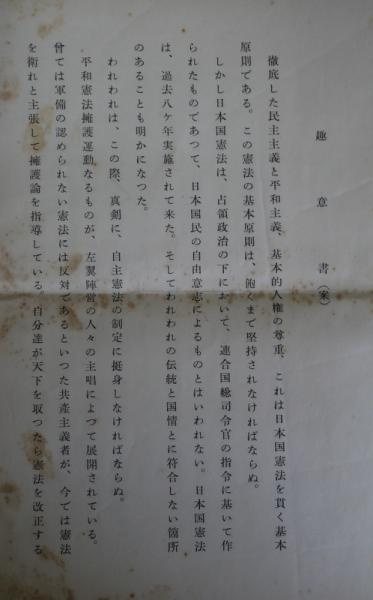 趣意書(案)
徹底した民主主義と平和主義、基本的人権の尊重、これは日本国憲法を貫く基本
原則である。この憲法の基本原則は、飽くまで堅持されなければならぬ。
しかし日本国憲法は、占領政治の下において、連合国総司令官の指令に基いて作
られたものであつて、日本国民の自由意志によるものとはいわれない。日本国憲法
は、過去八ケ年実施されて来た。そしてわれわれの伝統と国情とに符合しない箇所
のあることも明かになつた。
われわれは、この際、真剣に、自主憲法の制定に挺身しなければならぬ。
平和憲法擁護運動なるものが、左翼陣営の人々の主唱によつて展開されている。
曾ては軍備の認められない憲法には反対であるといつた共産主義者が、今では憲法
を衛れと主張して擁護論を指導している。自分達が天下を取つたら憲法を改正する